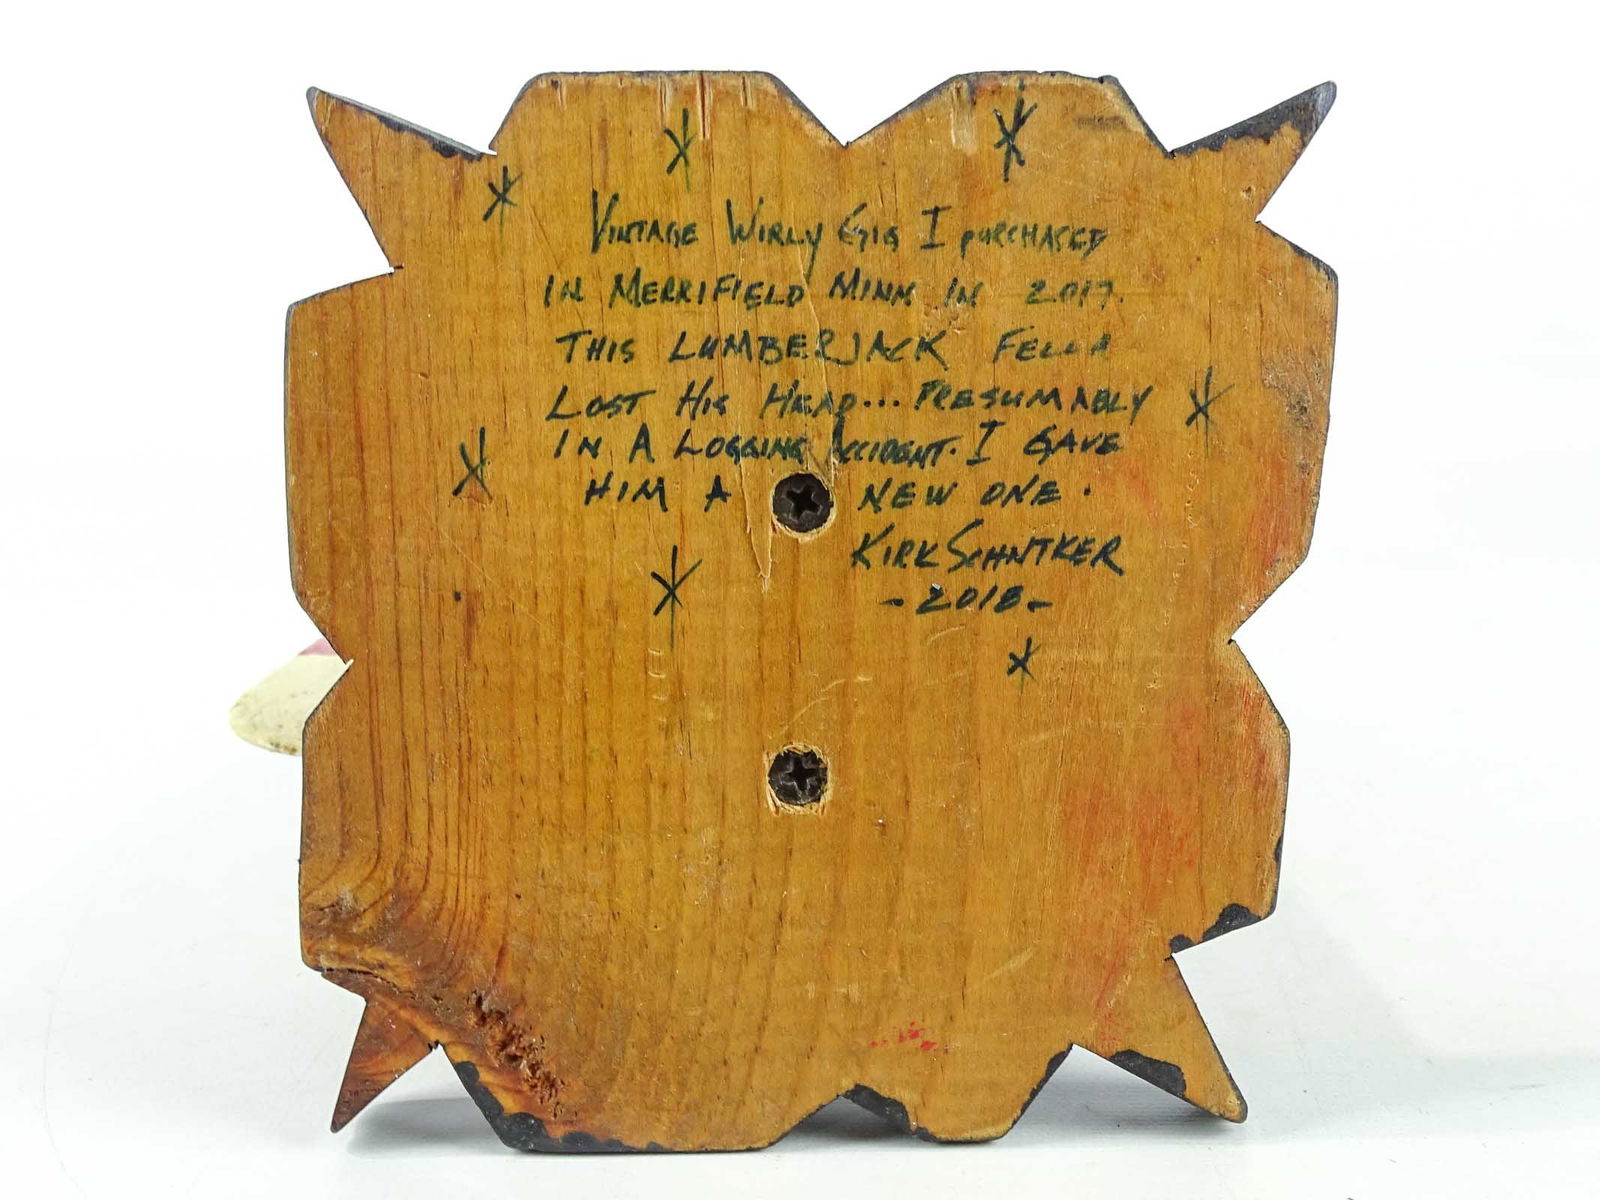 VINTAGE WIRLY GIG I PURCHASED
IN MERRIFIELD MINN IN 2017.
THIS LUMBERJACK FELLA
LOST HIS HEAD... PRESUMABLY
IN A LOGGING ACCIDENT. I GAVE
HIM A NEW ONE.
KIRK SCHNTKER
-2018-